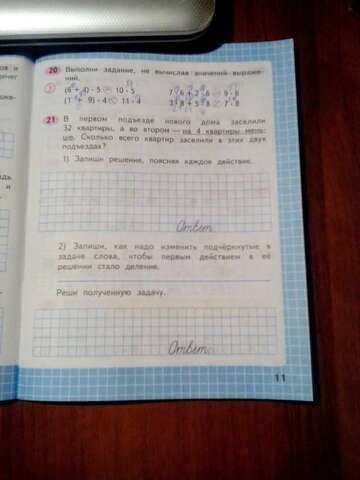 20 Выполни задание, не вычисляя значений выраже-
ний.
(6 + 4) · 5 = 10 · 5
7 · 6 + 2 · 6 = 9 · 6
(1 + 9) · 4 < 11 · 4
3 · 8 + 5 · 8 > 7 · 8
21 В первом подъезде нового дома заселили
32 квартиры, а во втором — на 4 квартиры мень-
ше. Сколько всего квартир заселили в этих двух
подъездах?
1) Запиши решение, поясняя каждое действие.
Ответ
2) Запиши, как надо изменить подчёркнутые в
задаче слова, чтобы первым действием в её
решении стало деление.
Реши полученную задачу.
Ответ
11